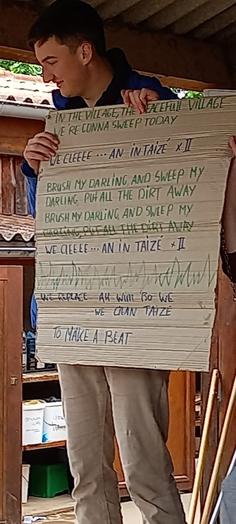 IN THE VILLAGE, THE PEACEFULL VILLAGE
WE'RE GONNA SWEEP TODAY
WE CLEEEE... AN IN TAIZÉ x II
BRUSH MY DARLING AND SWEEP MY
DARLING, PUT ALL THE DIRT AWAY
BRUSH MY DARLING AND SWEEP MY
DARLING, PUT ALL THE DIRT AWAY
WE CLEEE... AN IN TAIZÉ x II
WE REPLACE AH WIIH BO WE
WE CLEAN TAIZÉ
TO MAKE A BEAT